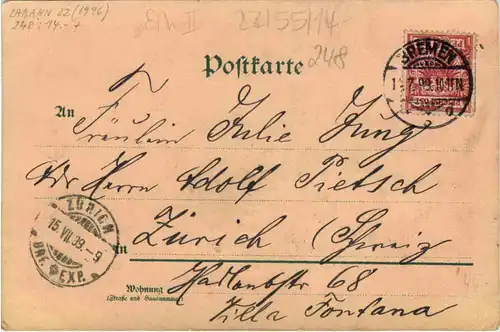 ZABAHN 22 (1996)
248.:14.-7
23/55/14-
248
Postkarte
BREMEN
An
Fräulein Julie Jung
Adr Herrn Adolf Pietsch
ZÜRICH
15.VII.98.-9
BRF. EXP.
in Zürich (Schweiz)
Wohnung Hadlaubstr 68
(Straße und Hausnummer)
Villa Fontana